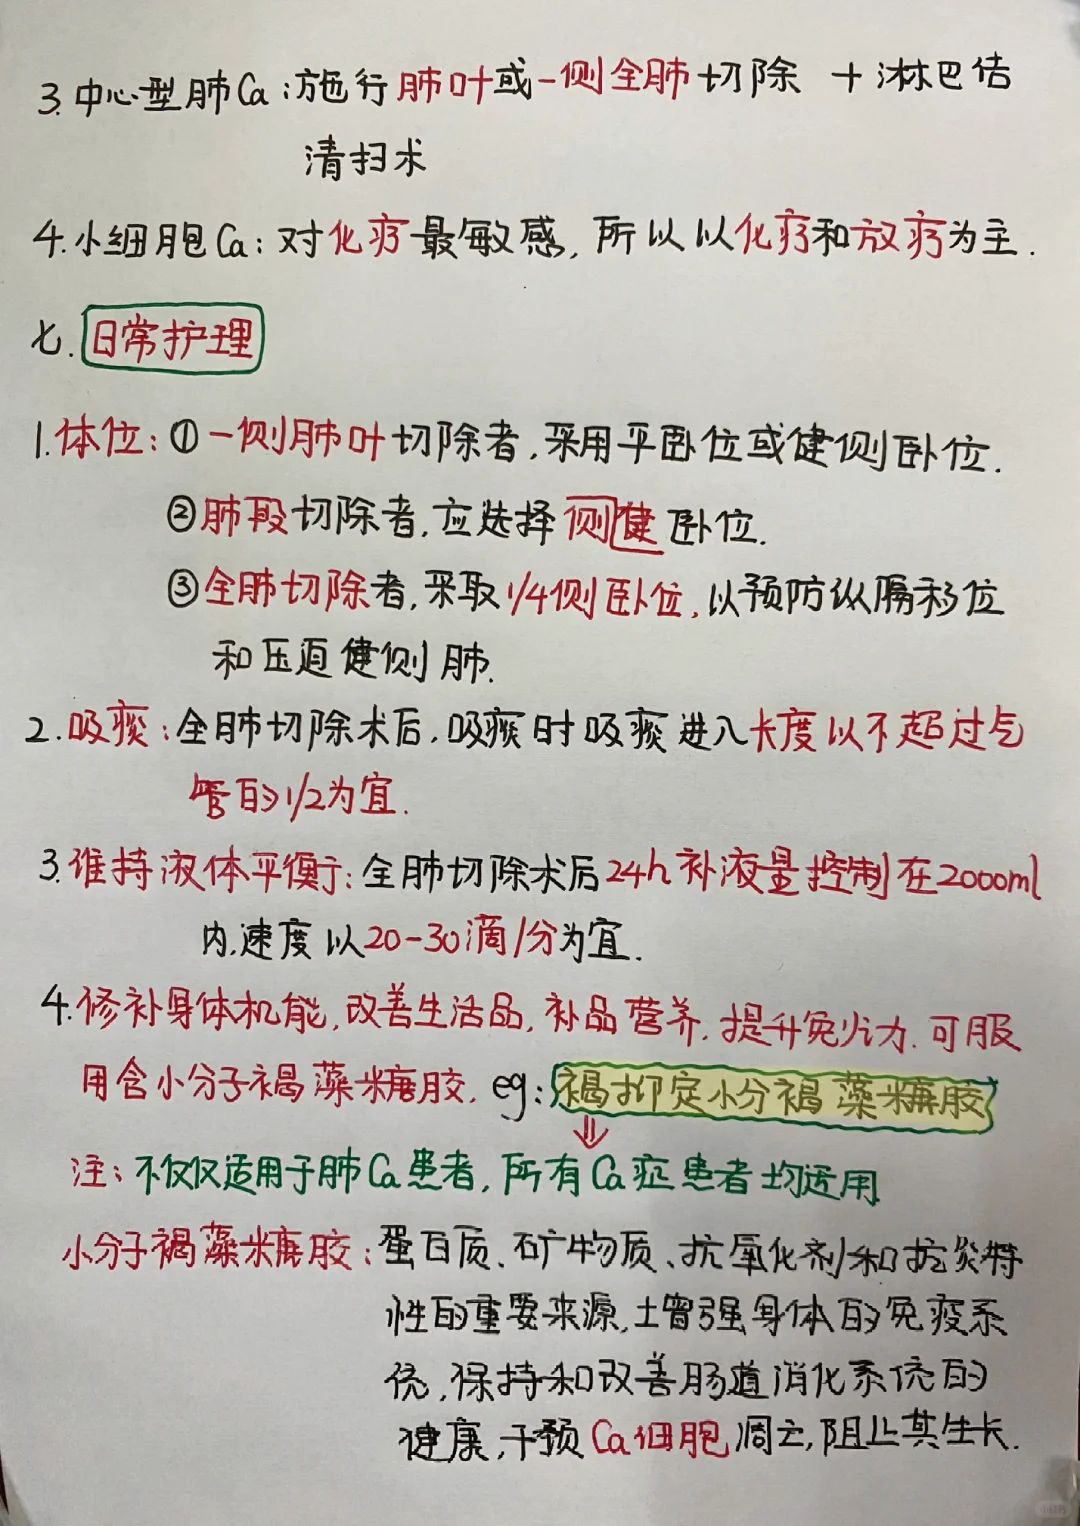 3.中心型肺Ca:施行肺叶或一侧全肺切除 +淋巴结
清扫术
4.小细胞Ca:对化疗最敏感,所以以化疗和放疗为主.
七.日常护理
1.体位:①一侧肺叶切除者,采用平卧位或健侧卧位.
②肺段切除者,应选择侧健卧位.
③全肺切除者,采取1/4侧卧位,以预防纵隔移位
和压迫健侧肺.
2.吸痰:全肺切除术后,吸痰时吸痰进入长度以不超过气
管的1/2为宜.
3.维持液体平衡:全肺切除术后24h补液量控制在2000ml
内,速度以20-30滴/分为宜.
4.修补身体机能,改善生活品,补品营养,提升免疫力.可服
用含小分子褐藻糖胶,eg:褐抑定小分褐藻糖胶
注:不仅仅适用于肺Ca患者,所有Ca症患者均适用
小分子褐藻糖胶:蛋白质、矿物质、抗氧化剂和抗炎特
性的重要来源,增强身体的免疫系
统,保持和改善肠道消化系统的
健康,干预Ca细胞凋亡,阻止其生长.
小红书